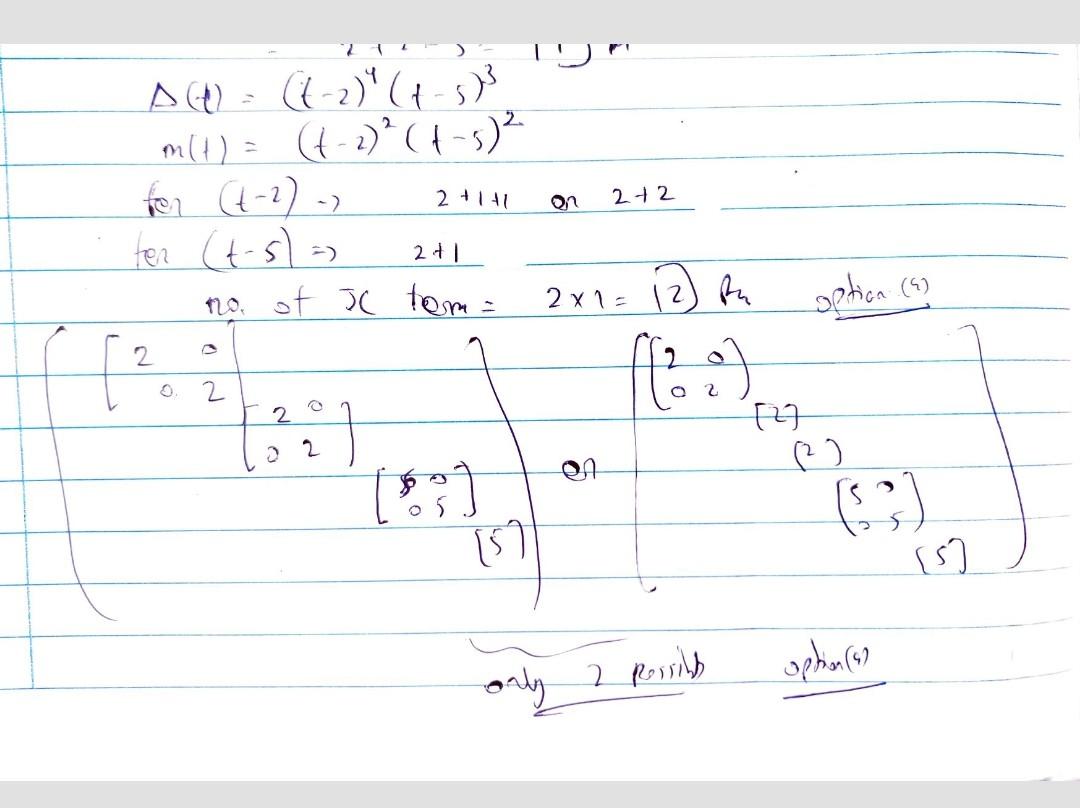 Δ(t) = (t-2)⁴ (t-5)³
m(t) = (t-2)² (t-5)²
for (t-2) -> 2+1+1 or 2+2
for (t-5) => 2+1
no. of JC term = 2×1 = [2] option (4)
[2 0] [2 0]
[0 2] [0 2]
[2 0] [2]
[0 2] (2)
or
[5 0] [5 0]
[0 5] [0 5]
[5] [5]
only 2 possible option (4)